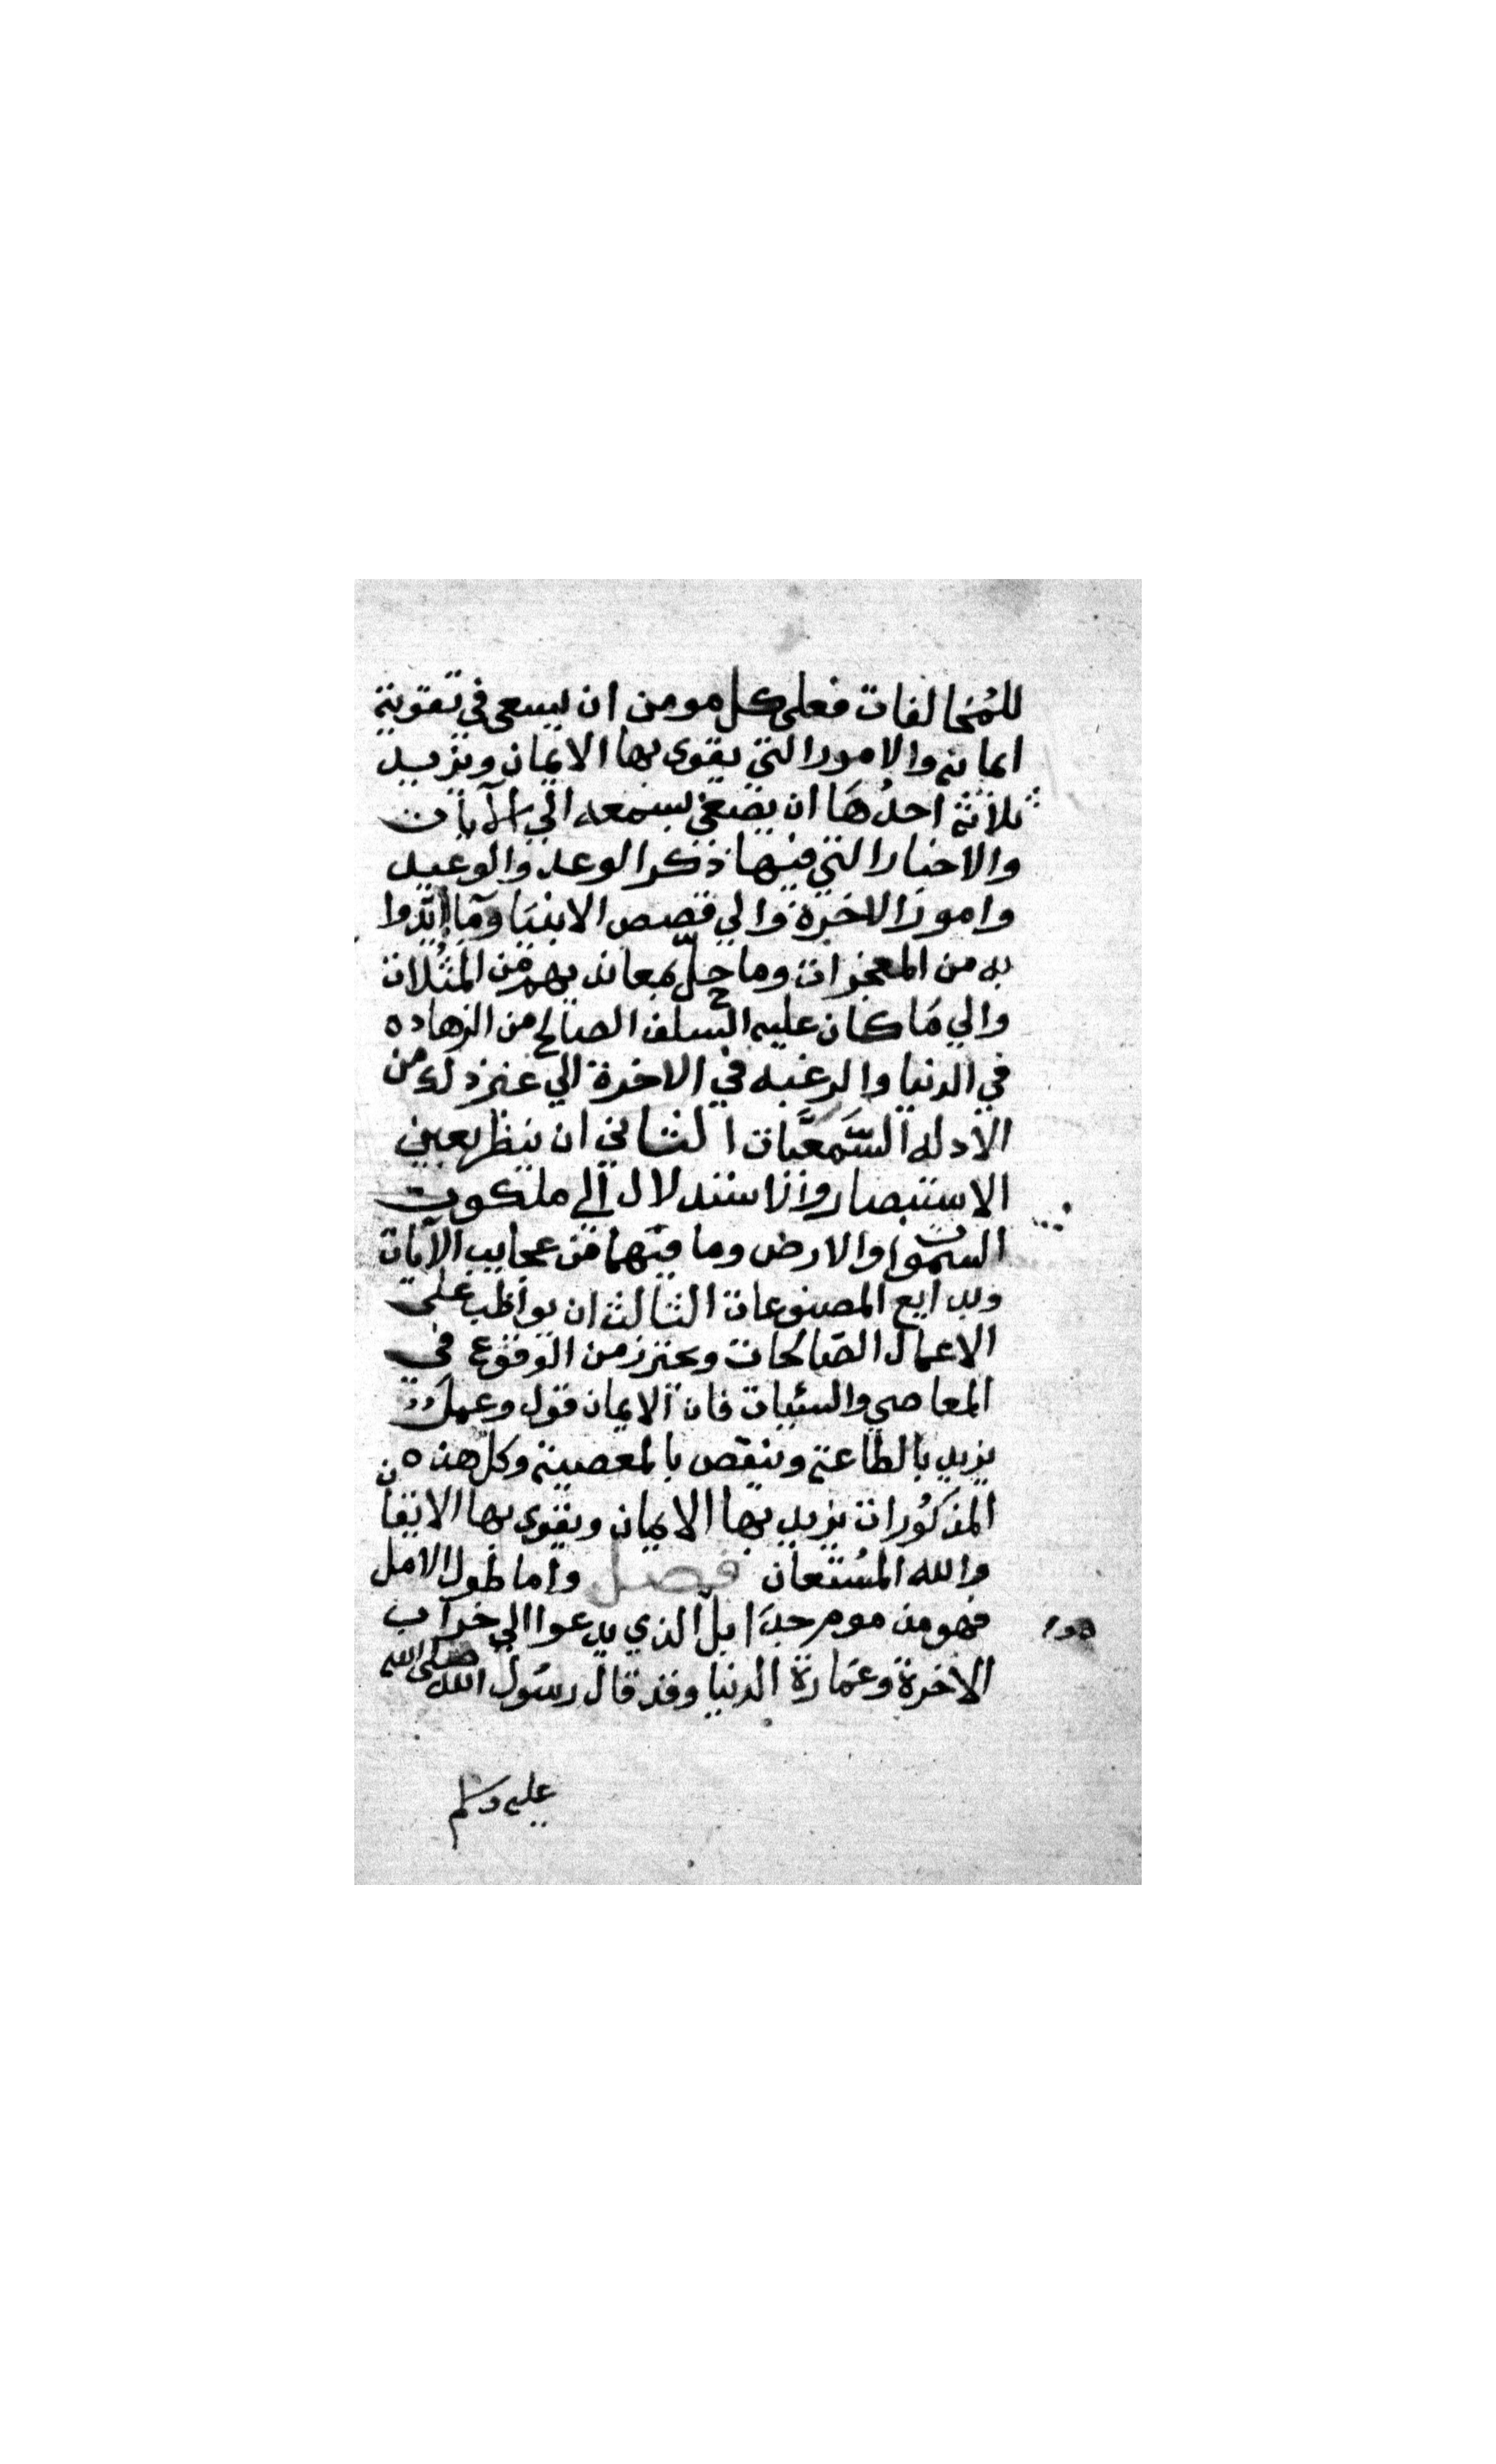 للمُخالفات فعلى كل مومن ان يسعى في تقوية
ايمانه والامور التي يقوى بها الايمان ويزيد
ثلاثة احدُهَا ان يصغي بسمعه الي الآيات
والاخبار التي فيها ذكر الوعد والوعيد
وامور الاخرة والي قصص الانبيا وما ايّدوا
به من المعجزات وما حلّ بمعانديهم من المثُلات
والي مَا كان عليه السلف الصالح من الزهاده
في الدنيا والرغبه في الاخرة الي غير ذلك من
الادله السَّمعيَّات الثاني ان ينظر بعين
الاستبصار والاستدلال الي ملكوت
السموات والارض وما فيهما من عجايب الآيات
وبدايع المصنوعات الثالث ان يواظب على
الاعمال الصالحات ويحترز من الوقوع في
المعاصي والسئيات فان الايمان قول وعمل
يزيد بالطاعة وينقص بالمعصية وكل هذه
المذكُورات يزيد بها الايمان ويقوى بها الايقان
والله المسُتعان فصل واما طول الامل
فهو مذموم جدَا بل الذي يدعوا الي خراب
الاخرة وعمَارة الدنيا وقد قال رسُول الله صلى الله
عليه وسلم